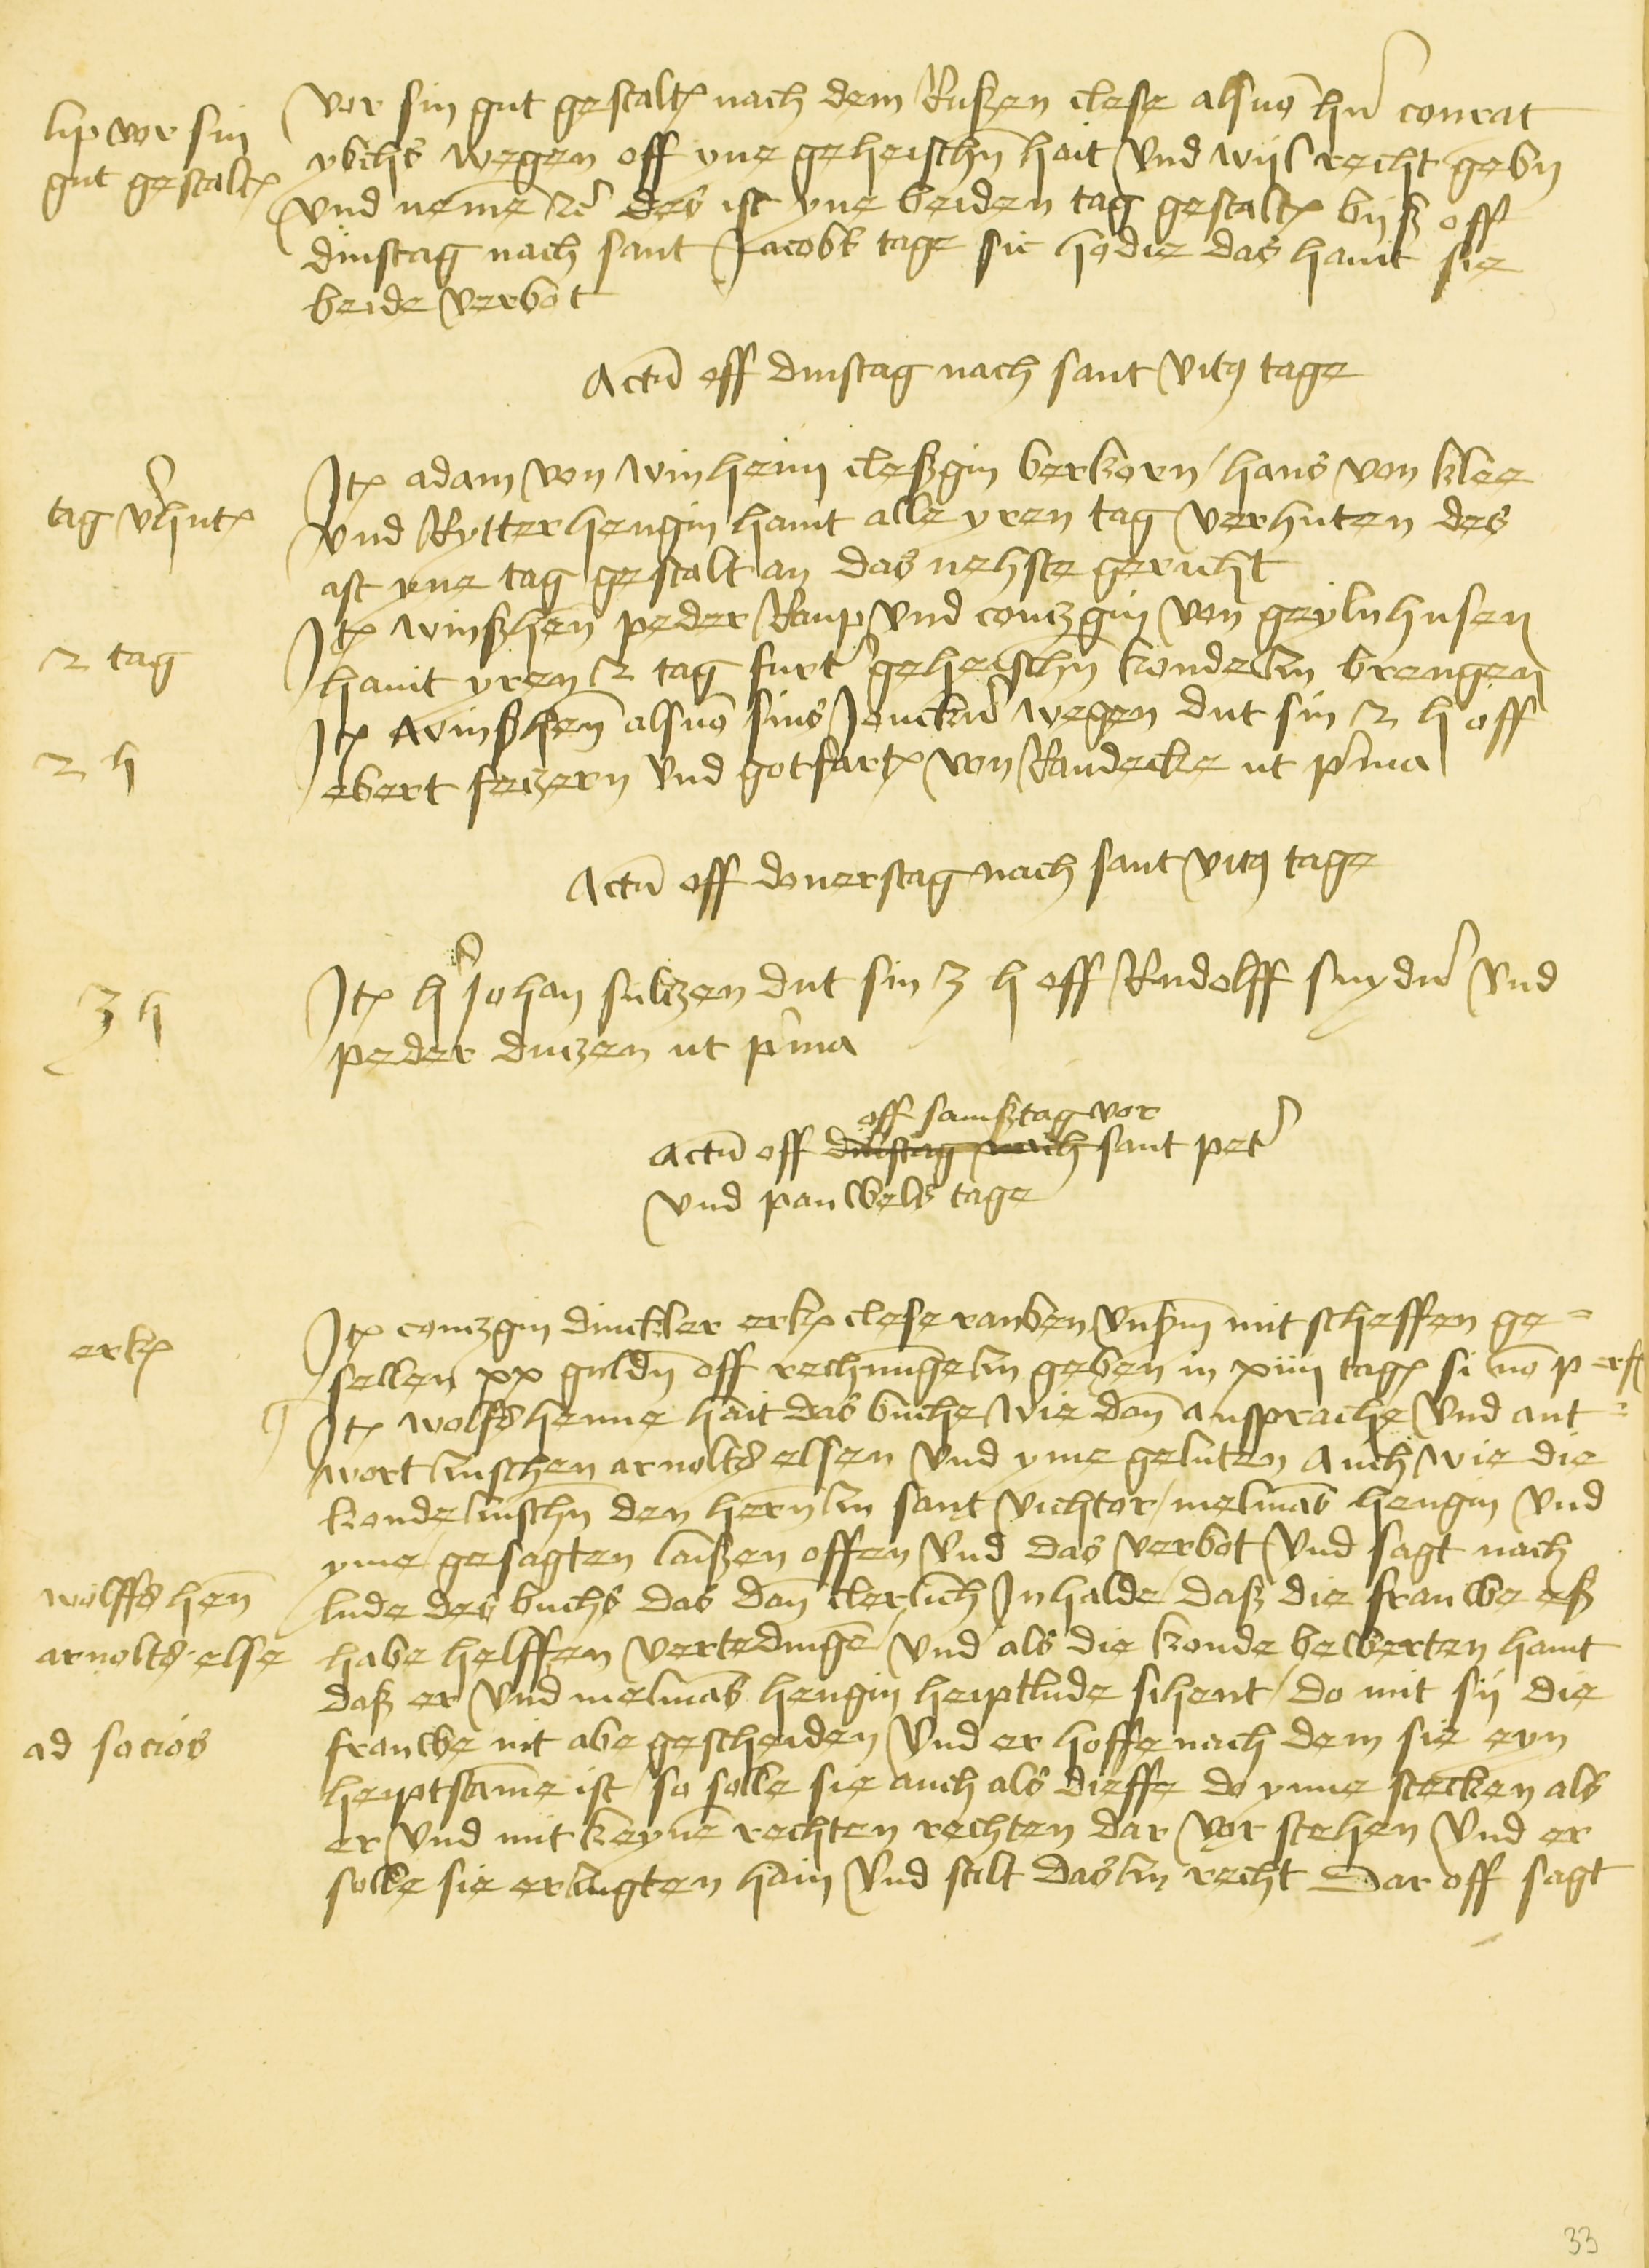 lip vor sin
gut gestalt
vor sin gut gestalt nach dem Rußen clese als vō hn̄ conrat
ybchs wegen off yne geheischn̄ hait vnd wijl recht gebn
vnd neme des ist yne beiden tag gestalt bijß off
dinstag nach sant Jacobs tage sic hodie das hant sie
beide verbot
Actū off dinstag nach sant vits tage
tag v̓hut
Jt adam von winheim cleßgin berkorn / hans von klee
vnd Rytter hengin hant alle yren tag verhuten des
ist yne tag gestalt an das nehste gericht
2 tag
Jt winßhen̄ peder Raup vnd contzgin von geylnhusen
hant yren 2 tag furt̓ geheischn̄ konde zu brengen
2 h
Jt winßhen̄ als vō sins Jonckn̄ wegen dut sin 2 h off
ebert feczern vnd gotfart von Randecke ut p̓ma
Actū off donerstag nach sant vits tage
3 h
Jt h̓ Johan sultzen dut sin 3 h off Rudolff snyd̓ vnd
peder duczen ut p̓ma
off samßtag vor
Actū off dinstag nach sant pet̓
vnd pauwels tage
erk
Jt contzgin dinckler erk clese rauben vnsm̄ mit scheffen ge=
sellen xx guldn̄ off rechnunge zu geben in xiiii tag si nō p erf
Jt wolffs henne hait das buche wie dan̄ ansprache vnd ant=
wort zuschen arnolts elsen vnd yme geluten auch wie die
konde zuschn̄ den hern̄ zu sant victhor / melmās hengin vnd
yme gesagten laißen offen vnd das verbot vnd sagt nach
wolffs hen̄
lude des buchs das dan̄ clerlich Jnhalde / daß die frauwe eß
arnolts else
habe helffen vertedingē / vnd als die konde bewerten hant
daß er vnd melmās hengin heiptlude sihent / do mit sij die
ad socios
frauwe nit abe gescheiden vnd er hoffe nach dem sie eyn
heiptsame ist / so solle sie auch als dieffe do ynne stecken als
er vnd mit keynē rechten rechten dar vor stehen vnd er
solle sie erzugten hain vnd stelt das zu recht Dar off sagt
33